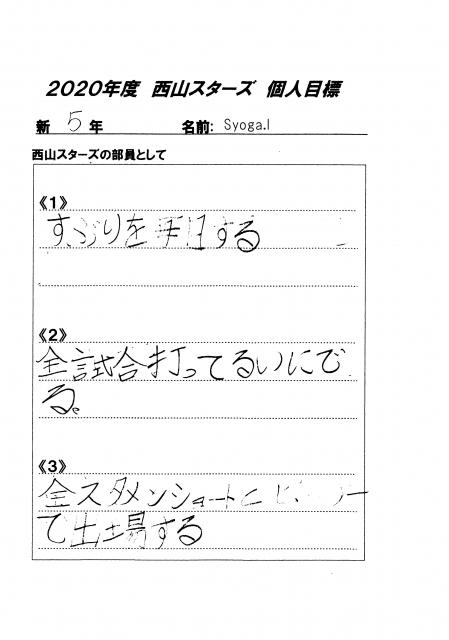 2020年度 西山スターズ 個人目標
新 5 年 名前: Syoga.I
西山スターズの部員として
《1》
すぶりを毎日する
《2》
全試合打ってるいにで
る。
《3》
全スタメンショートと
で出場する